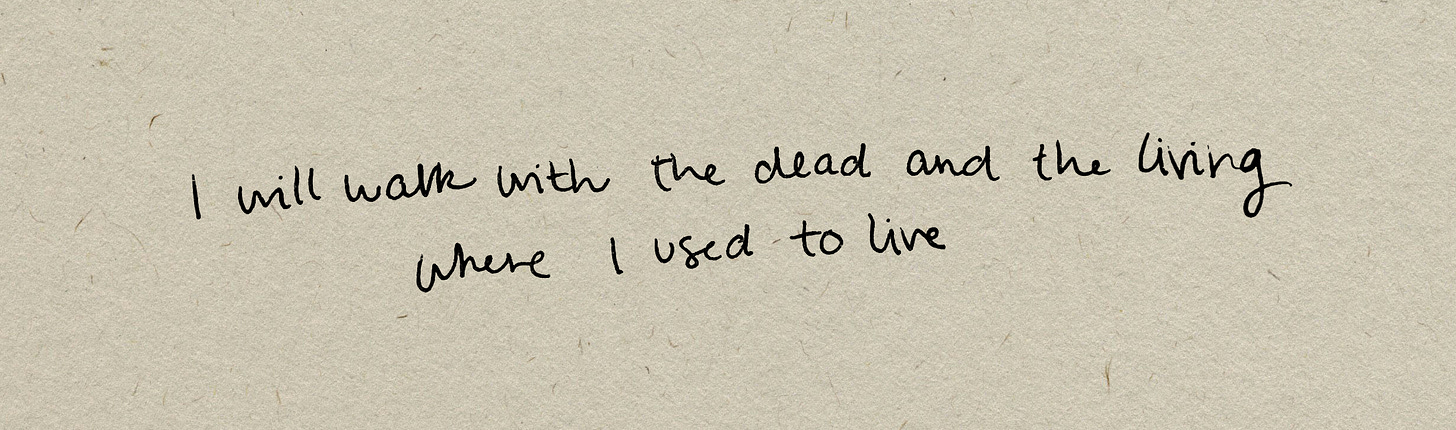 I will walk with the dead and the living
where I used to live